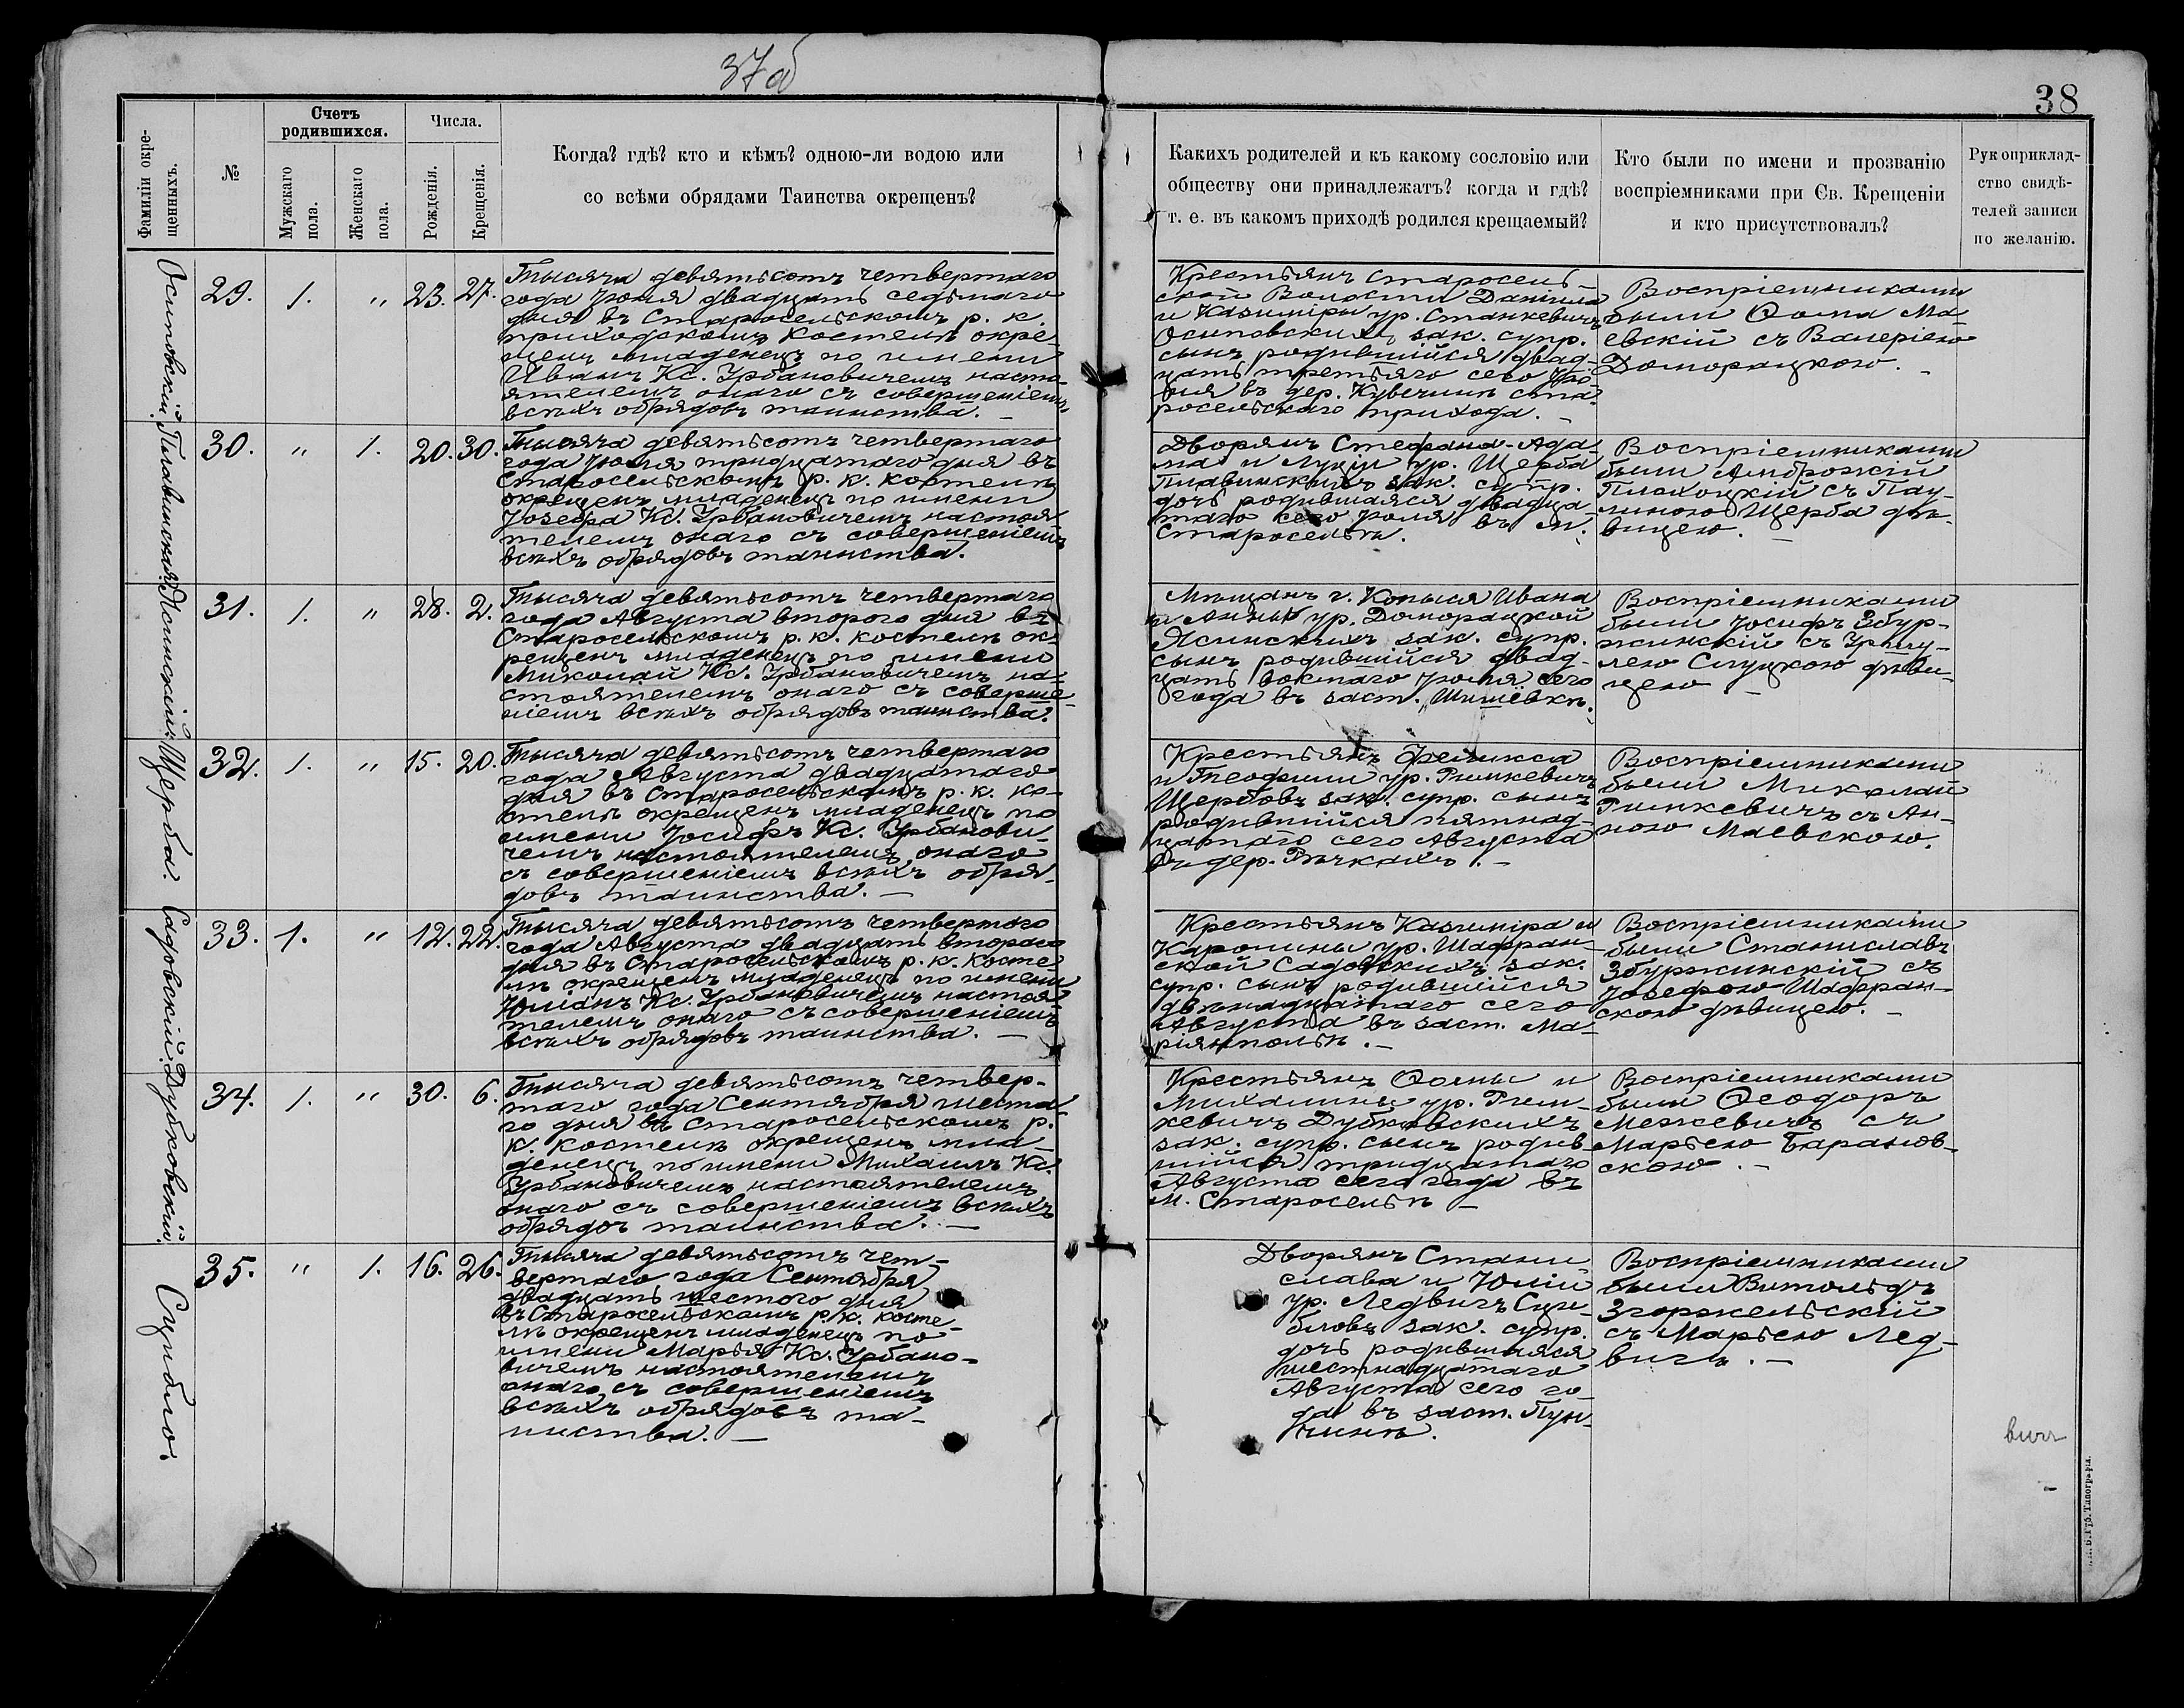 37б
38
Фамиліи окре-
щенныхъ.
№
Счетъ
родившихся.
Мужскаго
пола.
Женскаго
пола.
Числа.
Рожденія.
Крещенія.
Когда? гдѣ? кто и кѣмъ? одною-ли водою или
со всѣми обрядами Таинства окрещенъ?
Какихъ родителей и къ какому сословію или
обществу они принадлежатъ? когда и гдѣ?
т. е. въ какомъ приходѣ родился крещаемый?
Кто были по имени и прозванію
воспріемниками при Св. Крещеніи
и кто присутствовалъ?
Рукоприклад-
ство свидѣ-
телей записи
по желанію.
Осиповскій.
29. 1. " 23. 27.
Тысяча девятьсотъ четвертаго
года Юоля двадцать седьмаго
дня въ Старосельскомъ р. к.
приходскомъ Костелѣ окре-
щенъ младенецъ по имени
Иванъ Кс. Урбановичемъ насто-
ятелемъ онаго съ совершеніемъ
всѣхъ обрядовъ таинства. —
Крестьянъ Старосель-
ской Волости Даніила
и Казиміры ур. Станкевичъ
Осиповскихъ зак. супр.
сынъ родившійся двад-
цать третьяго сего Юо-
ля въ дер. Кувечинѣ ста-
росельскаго прихода. —
Воспріемниками
были Ѳома Ма-
евскій съ Валеріею
Доморацкою. —
Плавинская.
30. " 1. 20. 30.
Тысяча девятьсотъ четвертаго
года Юоля тридцатаго дня въ
Старосельскомъ р. к. костелѣ
окрещенъ младенецъ по имени
Јозефа Кс. Урбановичемъ настоя-
телемъ онаго съ совершеніемъ
всѣхъ обрядовъ таинства.
Дворянъ Стефана-Ада-
ма и Луціи ур. Щерба
Плавинскихъ зак. супр.
дочь родившаяся двадца-
таго сего Юоля въ м.
Старосельѣ.
Воспріемниками
были Амброжій
Плохоцкій съ Пау-
линою Щерба дѣ-
вицею. —
Ясинскій.
31. 1. " 28. 2.
Тысяча девятьсотъ четвертаго
года Августа второго дня въ
Старосельскомъ р. к. костелѣ ок-
рещенъ младенецъ по имени
Миколай Кс. Урбановичемъ на-
стоятелемъ онаго съ соверше-
ніемъ всѣхъ обрядовъ таинства.
Мѣщанъ г. Копыся Ивана
и Анны ур. Доморацкой
Ясинскихъ зак. супр.
сынъ родившійся двад-
цать восьмаго Юоля сего
года въ заст. Шишёвкѣ.
Воспріемниками
были Јосифъ Збур-
жинскій съ Уршу-
лею Слуцкою дѣви-
цею —
Щерба.
32. 1. " 15. 20.
Тысяча девятьсотъ четвертаго
года Августа двадцатаго
дня въ Старосельскомъ р. к. ко-
стелѣ окрещенъ младенецъ по
имени Јосифъ Кс. Урбанови-
чемъ настоятелемъ онаго
съ совершеніемъ всѣхъ обря-
довъ таинства. —
Крестьянъ Феликса
и Теофили ур. Римкевичъ
Щербовъ зак. супр. сынъ
родившійся пятнад-
цатаго сего Августа
въ дер. Рѣчкахъ. —
Воспріемниками
были Миколай
Римкевичъ съ Ан-
ною Маевскою.
Садовскій.
33. 1. " 12. 22.
Тысяча девятьсотъ четвертаго
года Августа двадцать второго
дня въ Старосельскомъ р. к. Косте
лѣ окрещенъ младенецъ по имени
Юліанъ Кс. Урбановичемъ настоя-
телемъ онаго съ совершеніемъ
всѣхъ обрядовъ таинства. —
Крестьянъ Казиміра и
Каролины ур. Шафран-
ской Садовскихъ зак.
супр. сынъ родившійся
двѣнадцатаго сего
Августа въ заст. Ма-
ріянполѣ. —
Воспріемниками
были Станиславъ
Збуржинскій съ
Јозефою Шафран-
скою дѣвицею. —
Дубковскій.
34. 1. " 30. 6.
Тысяча девятьсотъ четвер-
таго года Сентября шеста-
го дня въ Старосельскомъ р.
к. костелѣ окрещенъ мла-
денецъ по имени Михаилъ Кс.
Урбановичемъ настоятелемъ
онаго съ совершеніемъ всѣхъ
обрядовъ таинства. —
Крестьянъ Ѳомы и
Михалины ур. Рим-
кевичъ Дубковскихъ
зак. супр. сынъ родив-
шійся тридцатаго
Августа сего года въ
м. Старосельѣ —
Воспріемниками
были Ѳеодоръ
Межевичъ съ
Марьею Баранов-
скою. —
Сцибло.
35. " 1. 16. 26.
Тысяча девятьсотъ чет-
вертаго года Сентября
двадцать шестого дня
въ Старосельскомъ р. к. косте-
лѣ окрещенъ младенецъ по
имени Марья Кс. Урбано-
вичемъ настоятелемъ
онаго съ совершеніемъ
всѣхъ обрядовъ та-
инства. —
Дворянъ Стани-
слава и Юліи
ур. Ледвигъ Сци-
бловъ зак. супр.
дочь родившаяся
шестнадцатаго
Августа сего го-
да въ заст.
Воспріемниками
были Витольдъ
Згоржельскій
съ Марьею Лед-
вигъ. —